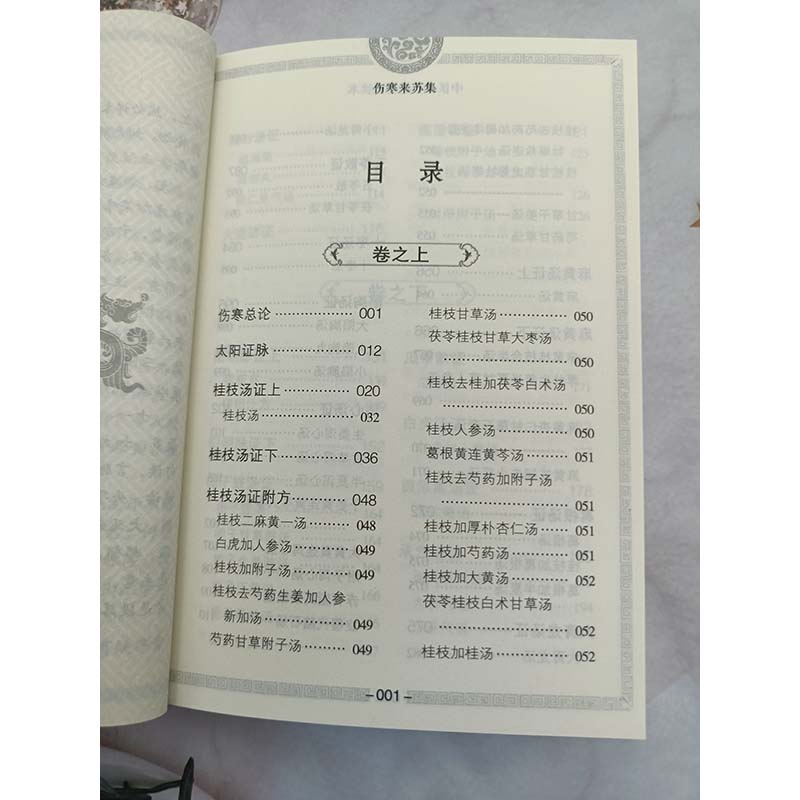 伤寒来苏集
目 录
卷之上
伤寒总论 ·················· 001
太阳证脉 ·················· 012
桂枝汤证上 ·············· 020
桂枝汤 ···················· 032
桂枝汤证下 ·············· 036
桂枝汤证附方 ··········· 048
桂枝二麻黄一汤 ······· 048
白虎加人参汤 ··········· 049
桂枝加附子汤 ··········· 049
桂枝去芍药生姜加人参
新加汤 ···················· 049
芍药甘草附子汤 ······· 049
桂枝甘草汤 ·············· 050
茯苓桂枝甘草大枣汤
································ 050
桂枝去桂加茯苓白术汤
································ 050
桂枝人参汤 ·············· 050
葛根黄连黄芩汤 ······· 051
桂枝去芍药加附子汤
································ 051
桂枝加厚朴杏仁汤 ···· 051
桂枝加芍药汤 ··········· 051
桂枝加大黄汤 ··········· 052
茯苓桂枝白术甘草汤
································ 052
桂枝加桂汤 ·············· 052
–001–